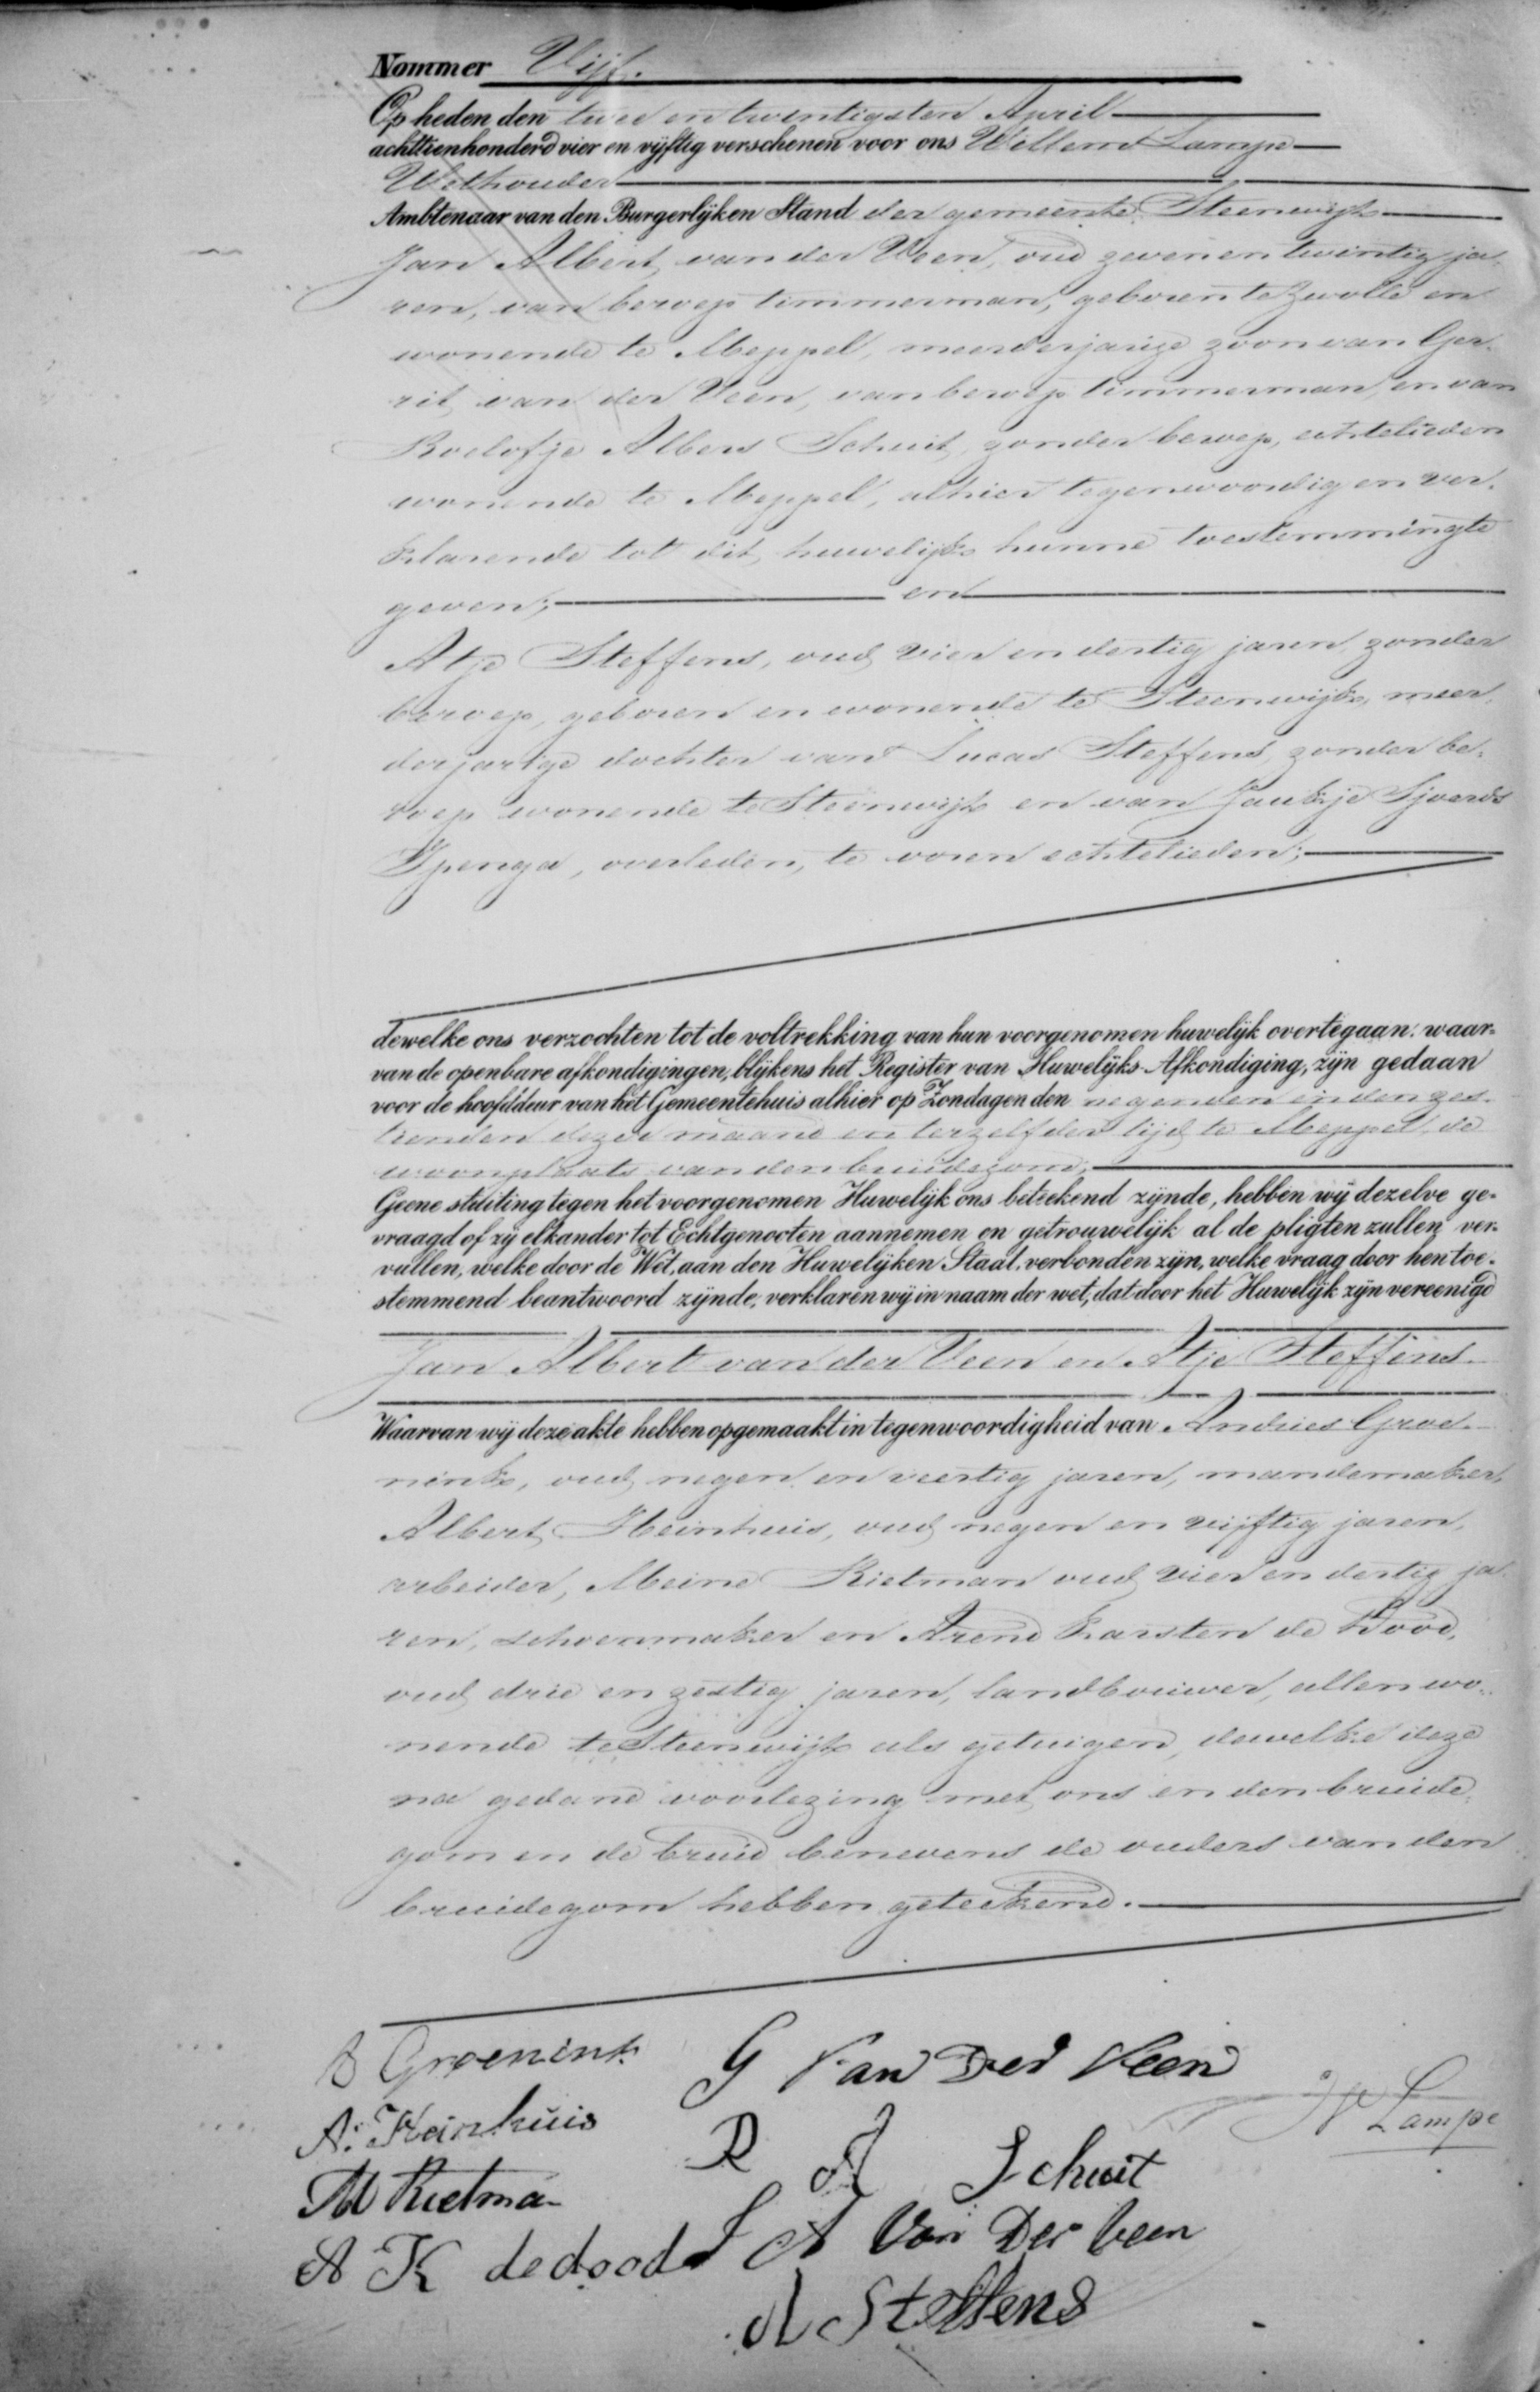 Nommer Vijf.
Op heden den twee en twintigsten April
achttienhonderd vier en vijftig verschenen voor ons Willem Lampe
Wethouder
Ambtenaar van den Burgerlijken Stand der gemeente Steenwijk
Jan Albert van der Veen, oud zeven en twintig ja-
ren, van beroep timmerman, geboren te Zwolle en
wonende te Meppel, meerderjarige zoon van Ger-
rit van der Veen, van beroep timmerman, en van
Roelofje Albers Schuit, zonder beroep, echtelieden
wonende te Meppel, alhier tegenwoordig en ver-
klarende tot dit huwelijk hunne toestemming te
geven; en
Atje Steffens, oud vier en dertig jaren, zonder
beroep, geboren en wonende te Steenwijk, meer-
derjarige dochter van Lucas Steffens, zonder be-
roep wonende te Steenwijk en van Jaukje Sjoerds
Ypenga, overleden, te voren echtelieden;
dewelke ons verzochten tot de voltrekking van hun voorgenomen huwelijk overtegaan: waar-
van de openbare afkondigingen, blijkens het Register van Huwelijks-Afkondiging, zijn gedaan
voor de hoofddeur van het Gemeentehuis alhier op Zondagen den negenden en den zes-
tienden dezer maand en terzelfder tijd te Meppel de
woonplaats van den bruidegom;
Geene stuiting tegen het voorgenomen Huwelijk ons beteekend zijnde, hebben wij dezelve ge-
vraagd of zij elkander tot Echtgenooten aannemen en getrouwelijk al de pligten zullen ver-
vullen, welke door de Wet aan den Huwelijken Staat verbonden zijn, welke vraag door hen toe-
stemmend beantwoord zijnde, verklaren wij in naam der wet, dat door het Huwelijk zijn vereenigd
Jan Albert van der Veen en Atje Steffens.
Waarvan wij deze akte hebben opgemaakt in tegenwoordigheid van Andries Groe-
nink, oud negen en veertig jaren, mandemaker,
Albert Heinhuis, oud negen en vijftig jaren,
arbeider, Meine Rietman oud vier en dertig ja-
ren, schoenmaker en Arend Karsten de Dood,
oud drie en zestig jaren, landbouwer, allen wo-
nende te Steenwijk als getuigen, dewelke deze
na gedane voorlezing met ons en den bruide-
gom en de bruid benevens de ouders van den
bruidegom hebben geteekend.
A Groenink G Van Der Veen
W Lampe
A: Heinhuis R A Schuit
M Rietman
A K de dood J A Van Der Veen
A Steffens